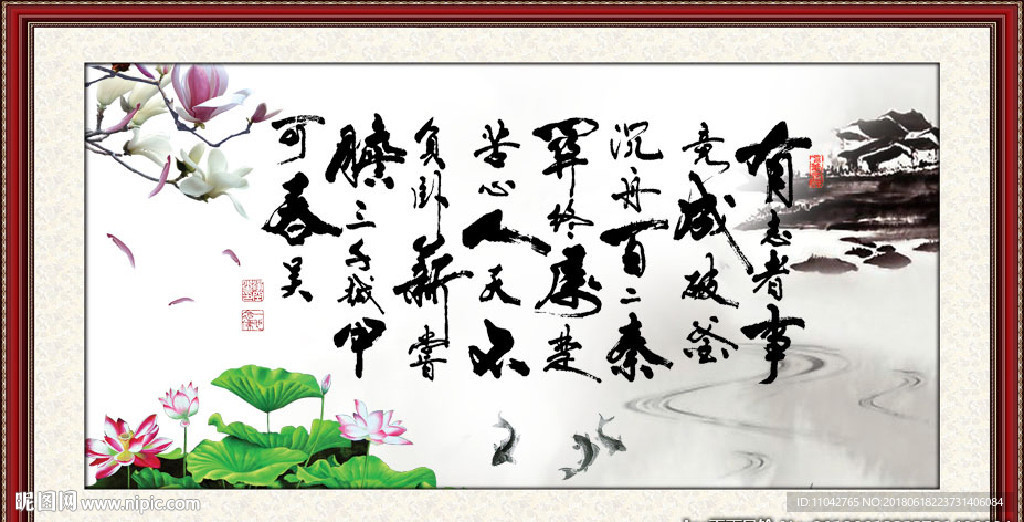 有志者事
竟成破釜
沉舟百二秦
關终屬楚
苦心人天不
負卧薪嘗
膽三千越甲
可吞吴
昵图网 www.nipic.com
ID:11042765 NO:20180618223731406084